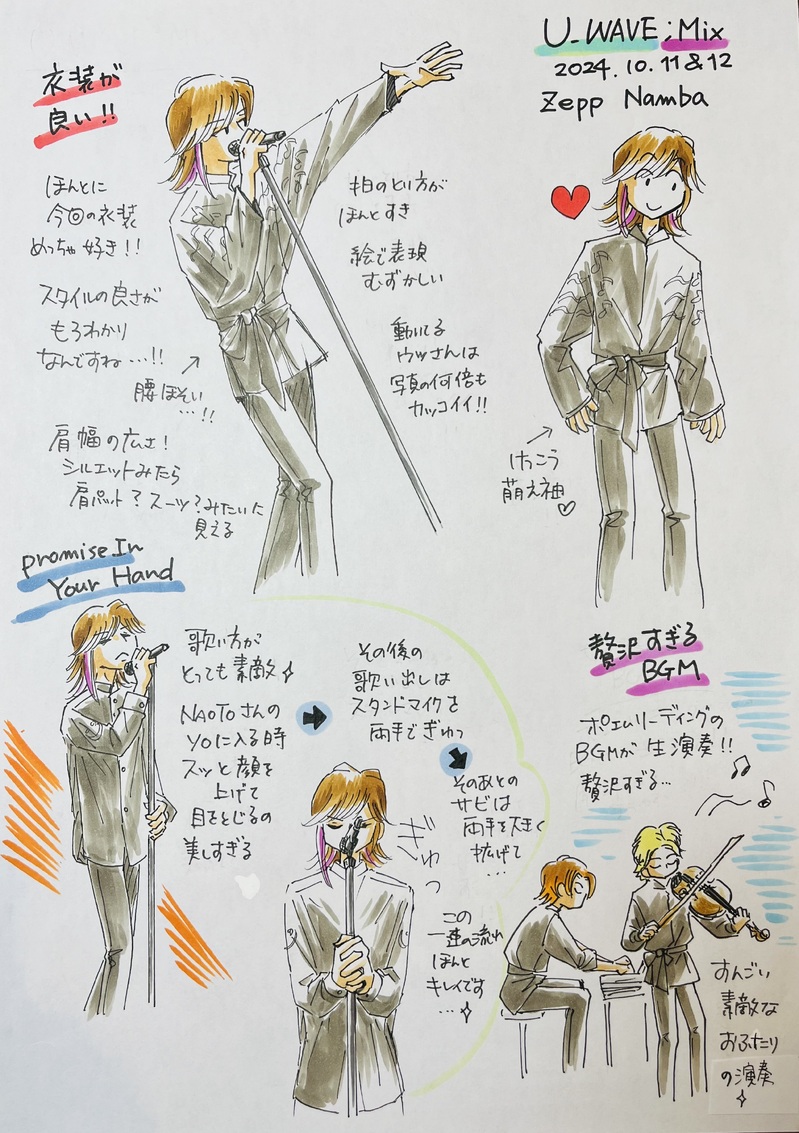 U_WAVE;Mix
2024.10.11&12
Zepp Namba
衣装が
良い!!
ほんとに
今回の衣装
めっちゃ好き!!
スタイルの良さが
もろわかり
なんですね…!!
腰ほそい
…!!
肩幅の広さ!
シルエットみたら
肩パット?スーツ?みたいに
見える
拍のとり方が
ほんとすき
絵で表現
むずかしい
動いてる
ウツさんは
写真の何倍も
カッコイイ!!
けっこう
萌え袖♡
promise In
Your Hand
歌い方が
とっても素敵
NAOTOさんの
ソロに入る時
スッと顔を
上げて
目をとじるの
美しすぎる
その後の
歌い出しは
スタンドマイクを
両手でぎゅっ
ぎゅっ
そのあとの
サビは
両手を大きく
拡げて
…
この
一連の流れ
ほんと
キレイです
…
贅沢すぎる
BGM
ポエムリーディングの
BGMが生演奏!!
贅沢すぎる…
すんごい
素敵な
おふたり
の演奏